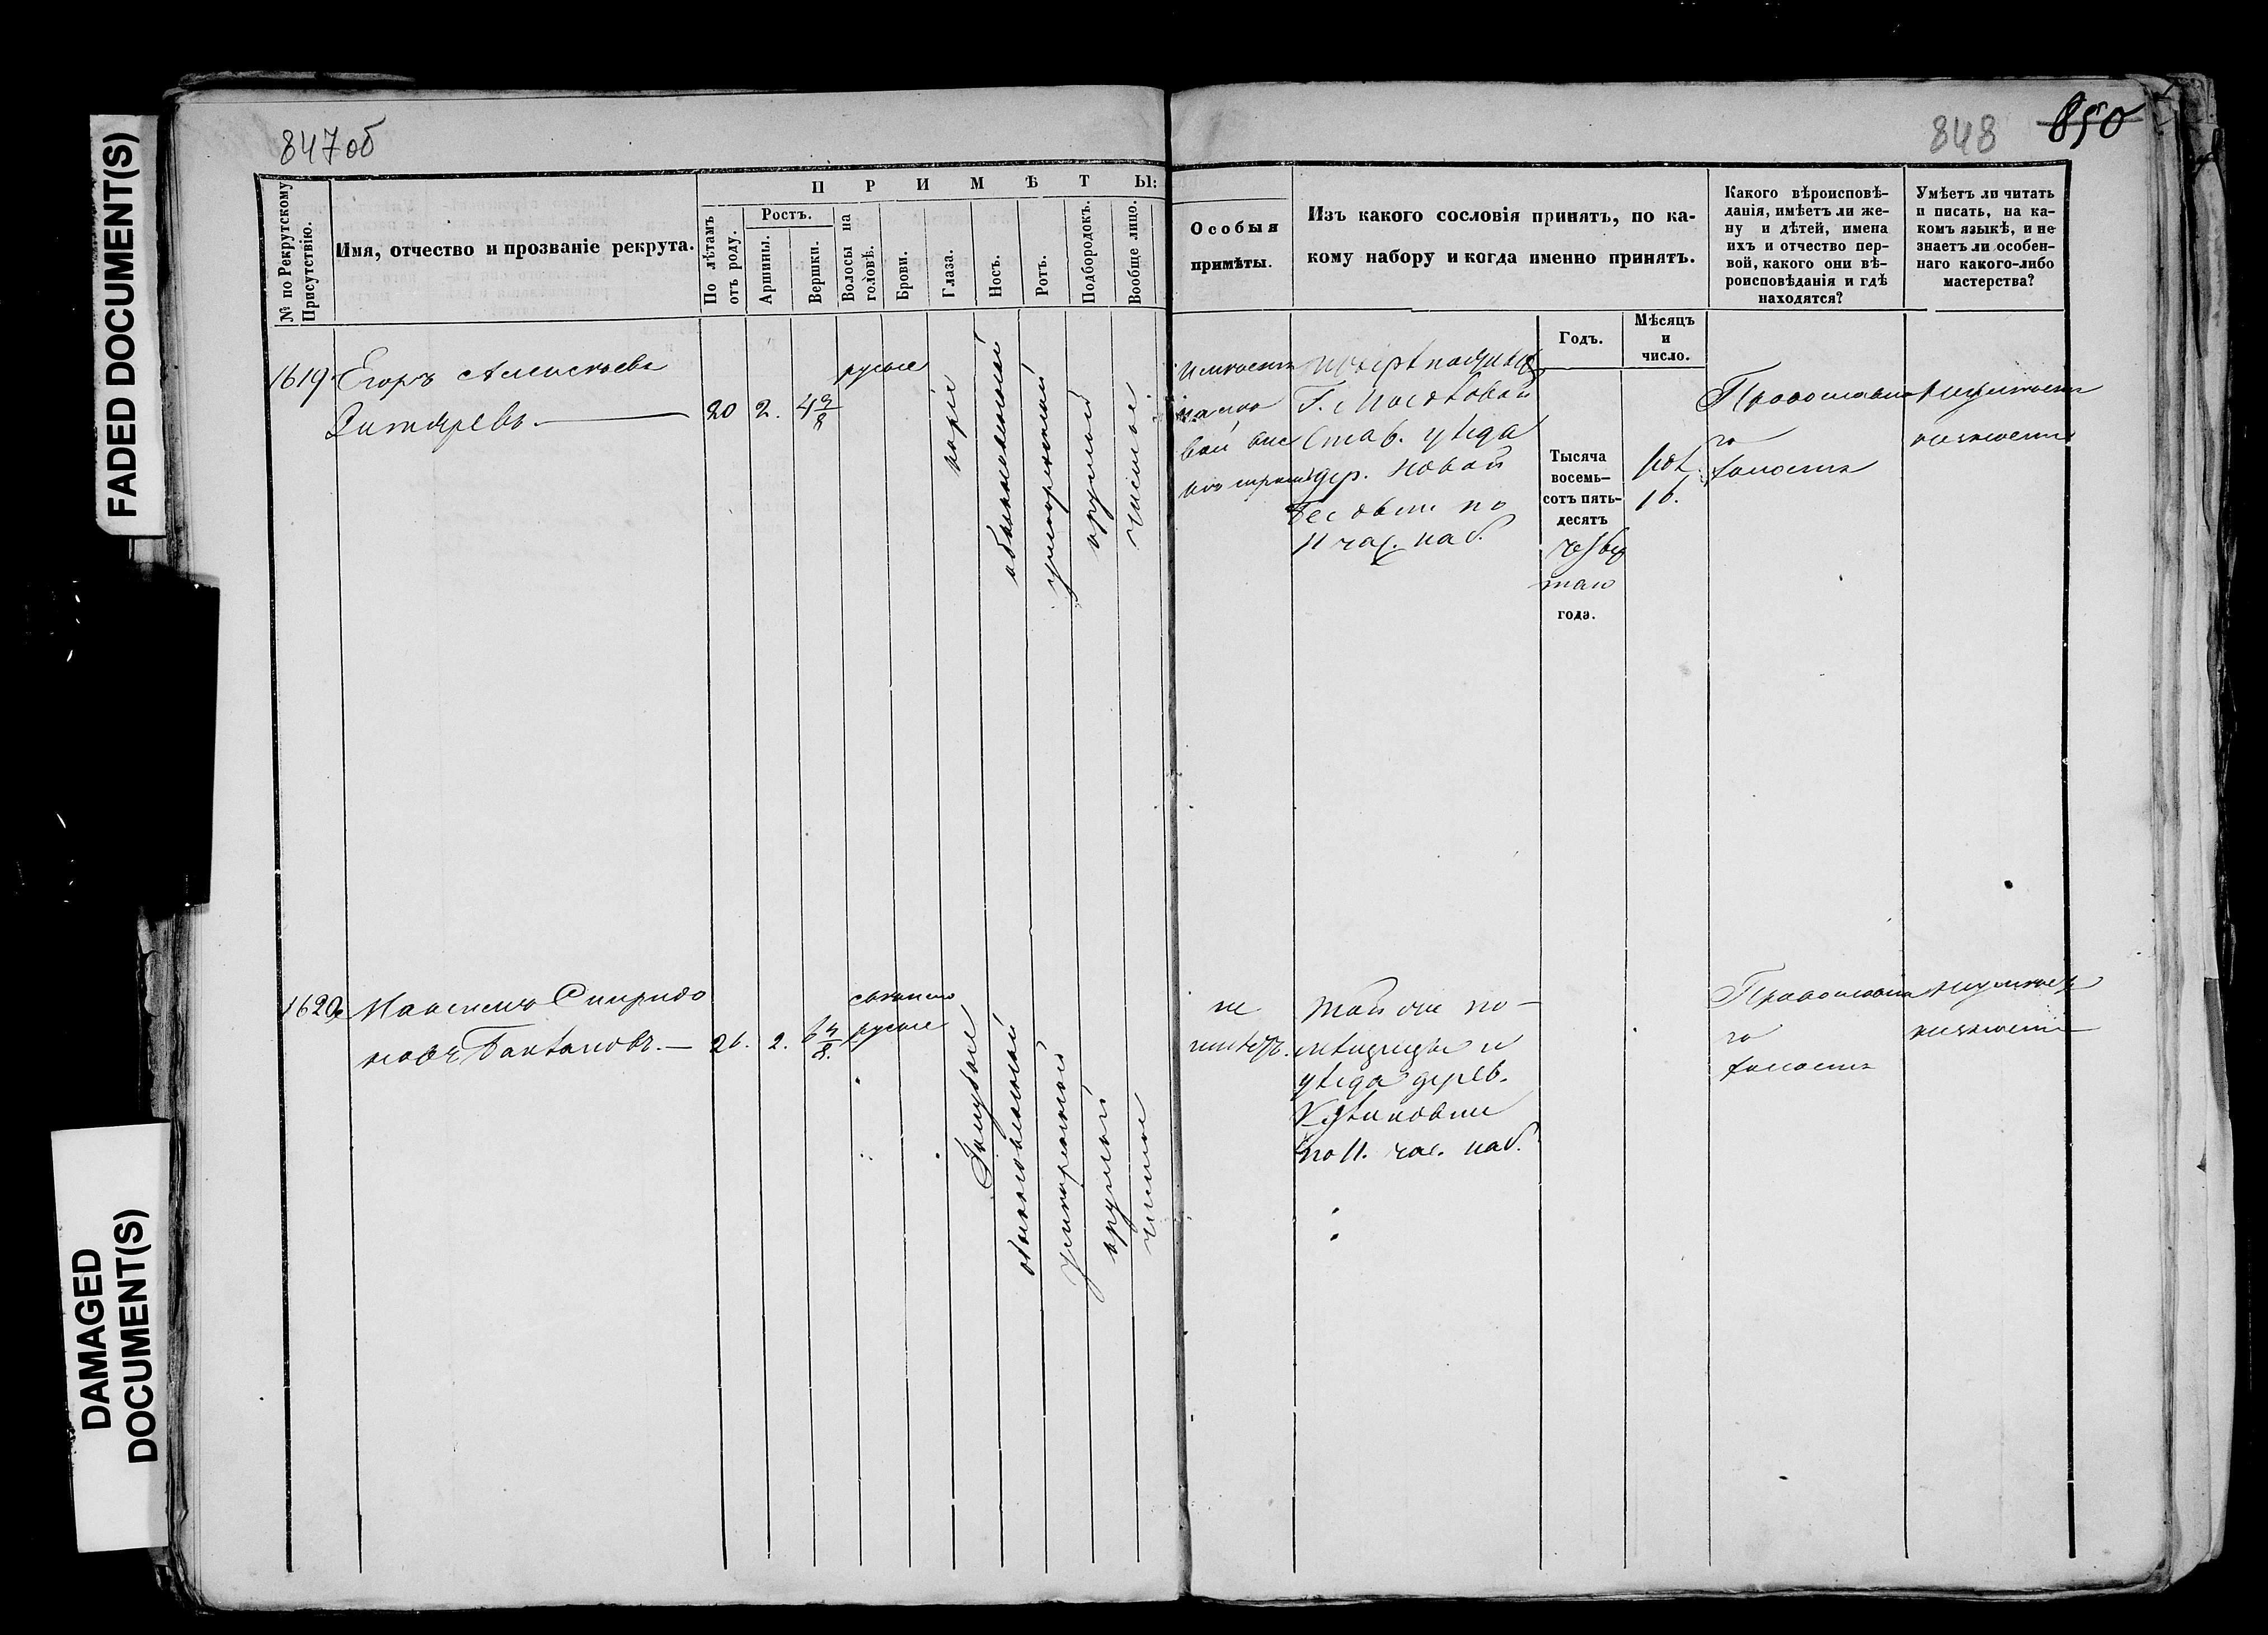 FADED DOCUMENT(S)
DAMAGED
DOCUMENT(S)
847об
848 850
№ по Рекрутскому
Присутствію.
Имя, отчество и прозваніе рекрута.
ПРИМѢТЫ:
По лѣтамъ
отъ роду.
Ростъ.
Аршины.
Вершки.
Волосы на
головѣ.
Брови.
Глаза.
Носъ.
Ротъ.
Подбородокъ.
Вообще лицо.
Особыя
примѣты.
Изъ какого сословія принятъ, по ка-
кому набору и когда именно принятъ.
Годъ.
Мѣсяцъ
и
число.
Какого вѣроисповѣ-
данія, имѣетъ ли же-
ну и дѣтей, имена
ихъ и отчество пер-
вой, какого они вѣ-
роисповѣданія и гдѣ
находятся?
Умѣетъ ли читать
и писать, на ка-
комъ языкѣ, и не
знаетъ ли особен-
наго какого-либо
мастерства?
1619.
Егоръ Алексѣевъ
20
2.
4 3/8
русые
каріе
обыкновенный
умѣренный
круглый
чистое
уѣзда
дер. Новой
по
11 час. наб.
Тысяча
восемь-
сотъ пять-
десятъ
четвер
таго
года.
16.
Православна
го
холостъ
неумѣетъ
незнаетъ
1620.
Максимъ Спиридо
новъ
26.
2.
6 4/8
свѣтло
русые
голубые
обыкновенный
умѣренный
круглый
чистое
не
имѣетъ.
уѣзда дерев.
по 11. час. наб.
Православна
го
холостъ
неумѣетъ
незнаетъ